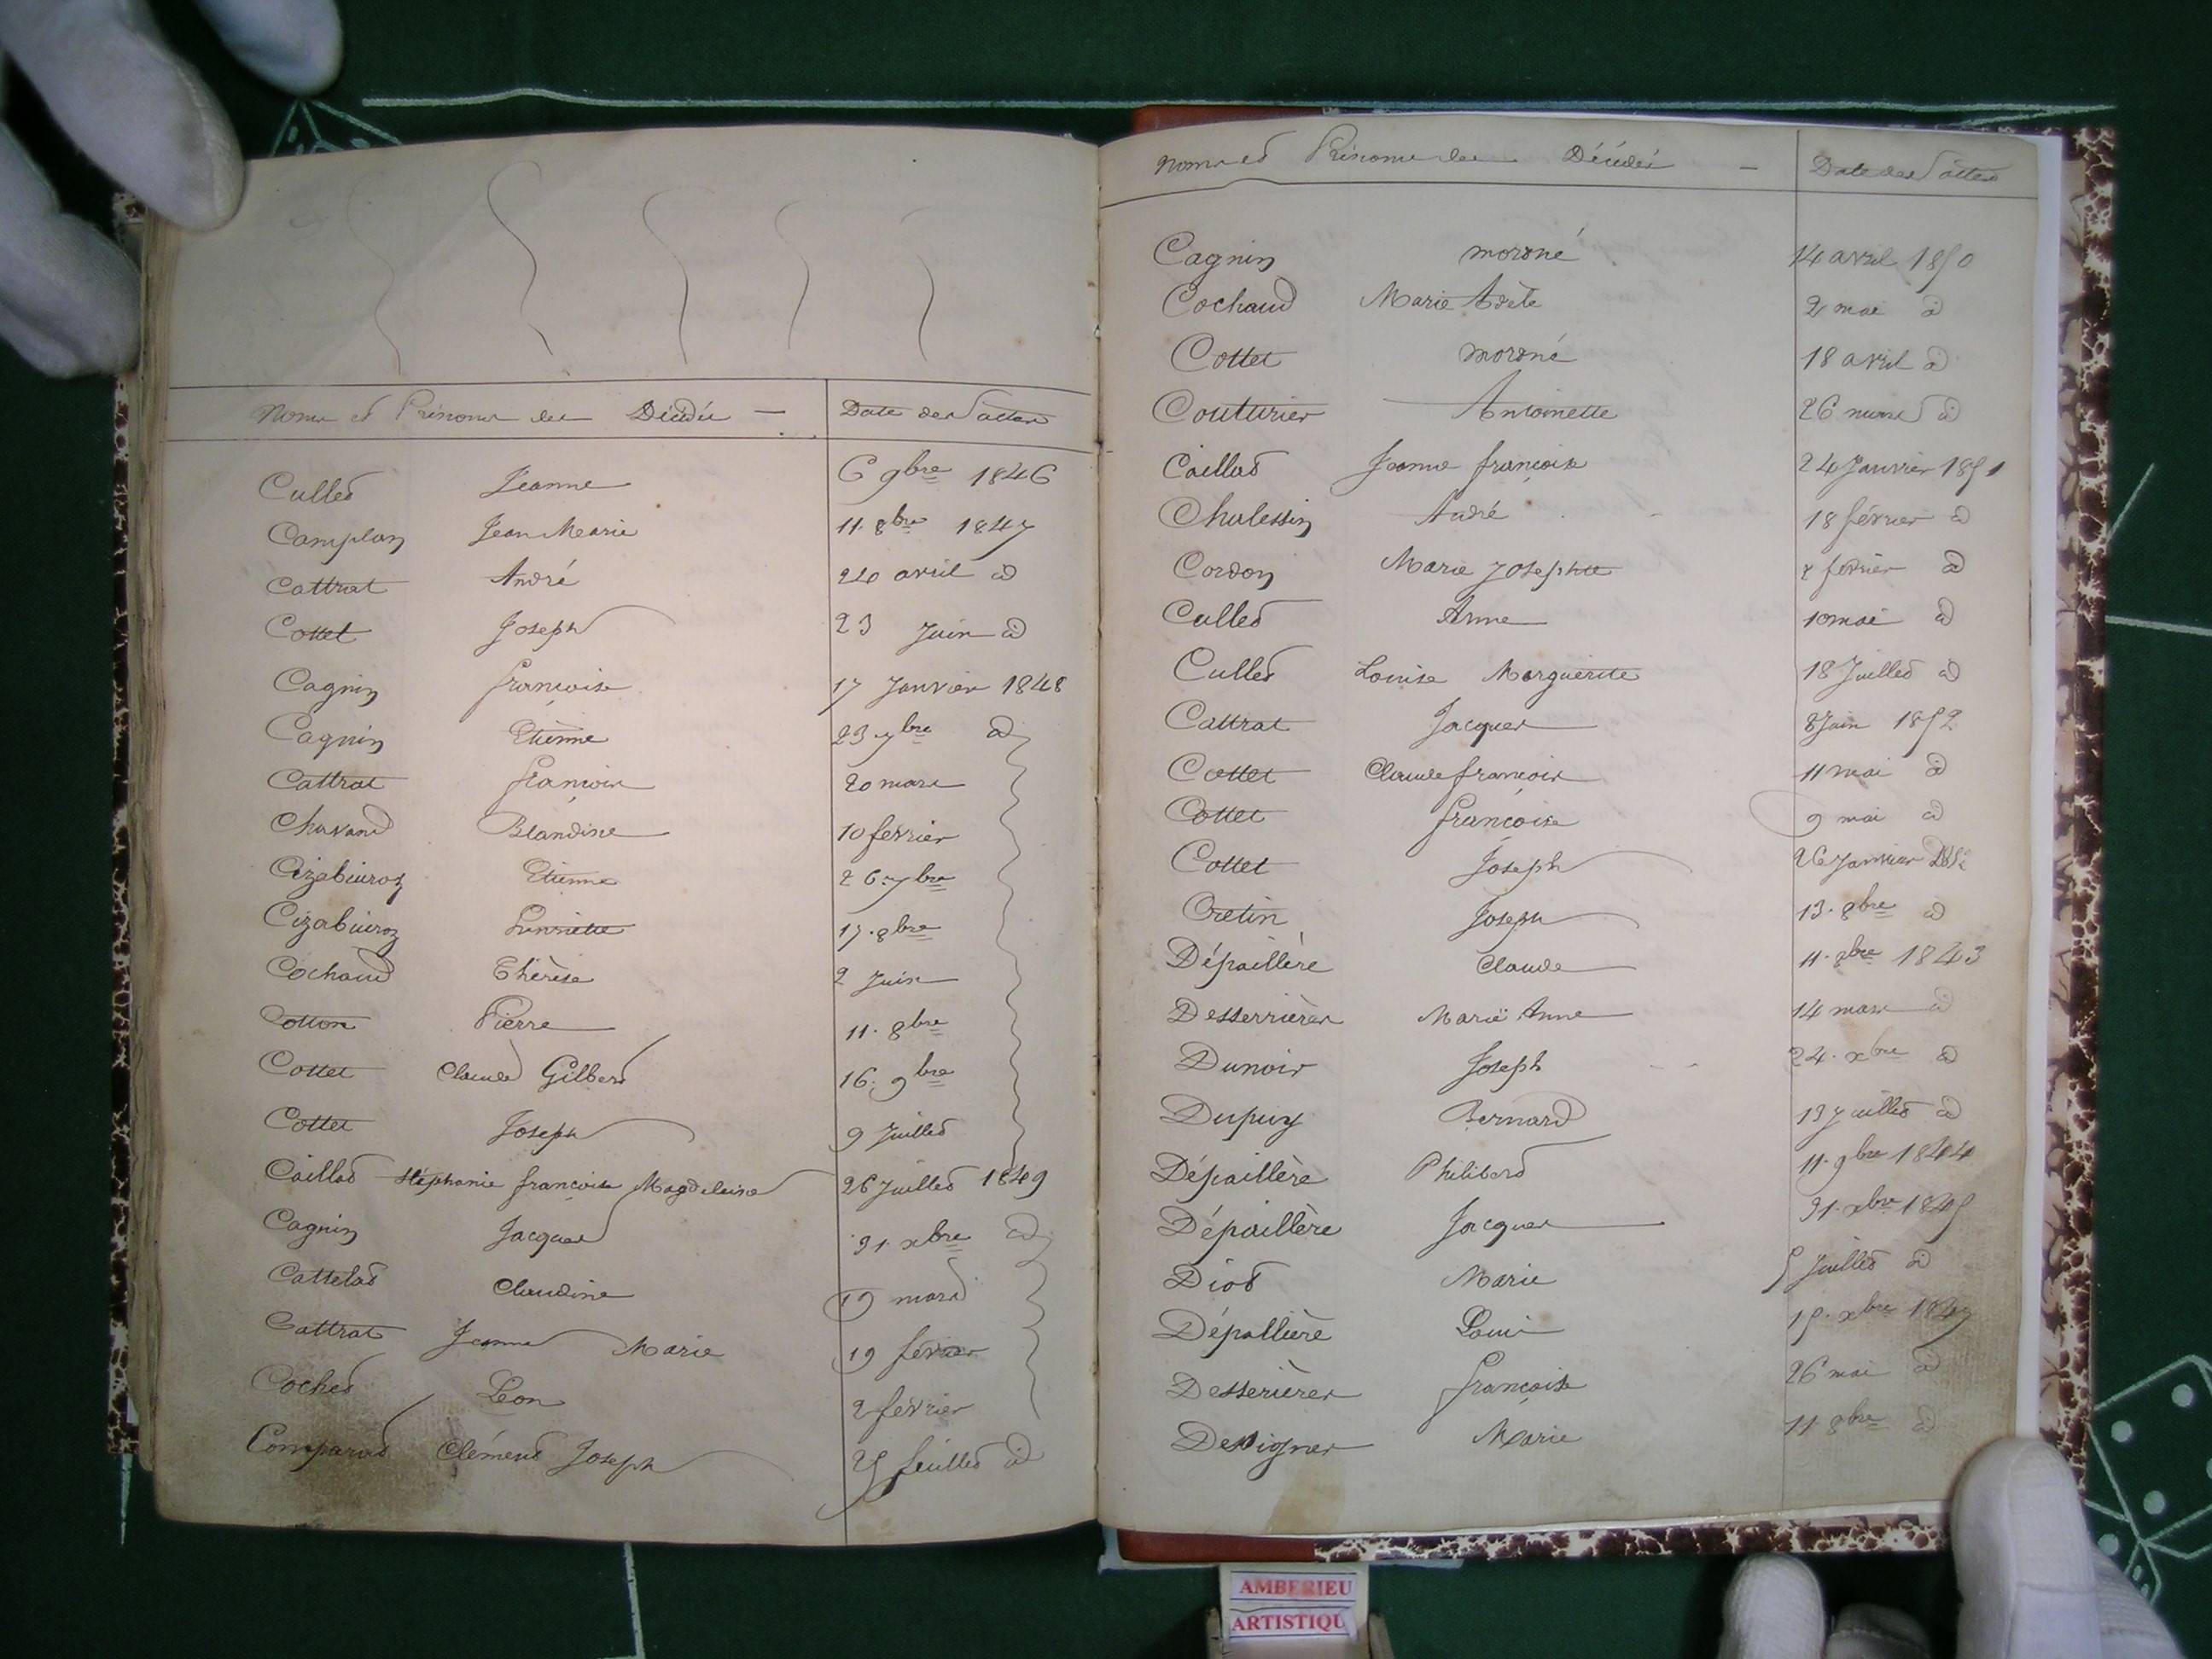 Noms et Prénoms des Décédés — Date des actes
Cullet Jeanne 6 9bre 1846
Camplan Jean Marie 11. 8bre 1847
Cattrat André 20 avril d
Cottet Joseph 23 Juin d
Cagnin françoise 17 Janvier 1848
Cagnin Etienne 23. 7bre d
Cattrat françois 20 mars
Chavand Blandine 10 février
Cizabuiroz Etienne 26. 7bre
Cizabuiroz 17. 8bre
Cochaud Thérèse 2 Juin
Cotton Pierre 11. 8bre
Cottet Claude Gilbert 16. 9bre
Cottet Joseph 9 Juillet
Caillat Stéphanie françoise Magdeleine 26 Juillet 1849
Cagnin Jacques 31. xbre d
Cattelat Claudine 19 mars
Cattrat Jeanne Marie 19 février
Cochet Léon 2 février
Comparat Clément Joseph Juillet d
Noms et Prénoms des Décédés — Date des actes
Cagnin morné 14 avril 1850
Cochaud Marie Adèle 2 mai d
Cottet morné 18 avril d
Couturier Antoinette 26 mars d
Caillat Jeanne françoise 24 Janvier 1851
Chalessin André 18 février d
Cordon Marie Josephte février d
Cullet Anne 10 mai d
Cullet Louise Marguerite 18 Juillet d
Cattrat Jacques 8 Juin 1852
Cottet Claude françois 11 mai d
Cottet françoise 9 mai d
Cottet Joseph 26 Janvier
Cretin Joseph 13. 8bre d
Dépaillère Claude 11. 8bre 1843
Desserrières Marie Anne 14 mars d
Dunoir Joseph 24. xbre d
Dupuy Bernard 13 Juillet d
Dépaillère Philibert 11. 9bre 1844
Dépaillère Jacques 31. xbre 1845
Diot Marie 5 Juillet d
Dépallière Louis 15. xbre 1847
Desserières françoise 26 mai d
Dessignes Marie 11. 8bre d
AMBERIEU
ARTISTIQU